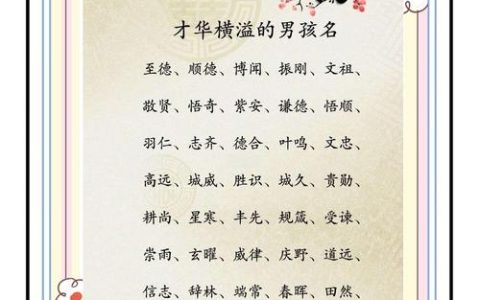 才华横溢的男孩名
至德、顺德、博闻、振刚、文祖、
敬贤、悟奇、紫安、谦德、悟顺、
羽仁、志齐、德合、叶鸣、文忠、
高远、城威、胜识、城久、贵勋、
耕尚、星寒、丰先、规箴、受谏、
崇雨、玄曜、威律、庆野、道远、
信志、辞林、端常、春晖、田然、